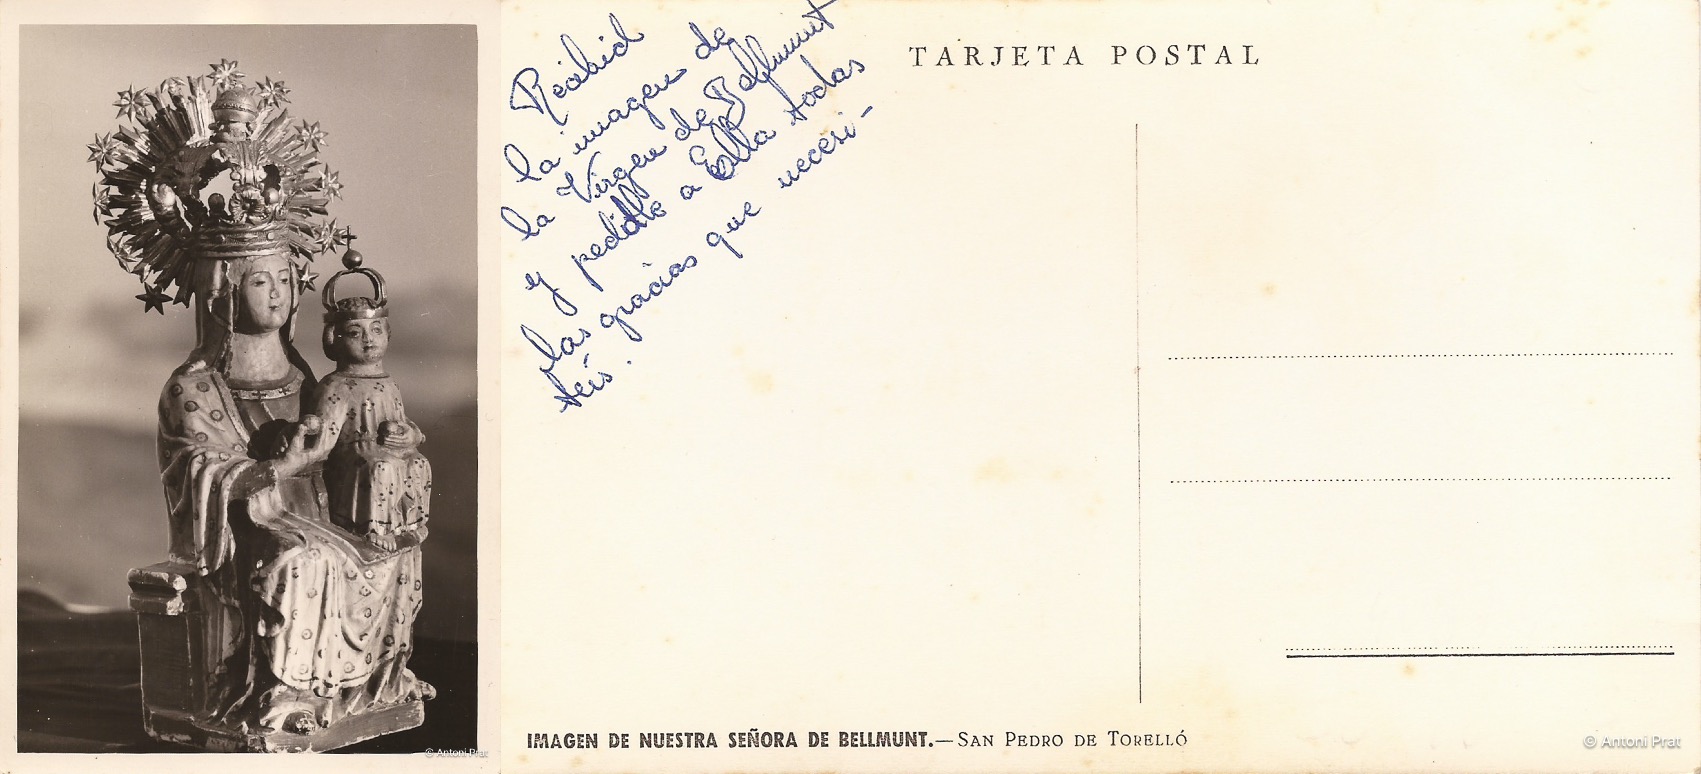 © Antoni Prat
Recibid
la imagen de
la Virgen de Bellmunt
y pedidle a Ella todas
las gracias que necesi-
teis.
TARJETA POSTAL
IMAGEN DE NUESTRA SEÑORA DE BELLMUNT.—SAN PEDRO DE TORELLÓ
© Antoni Prat